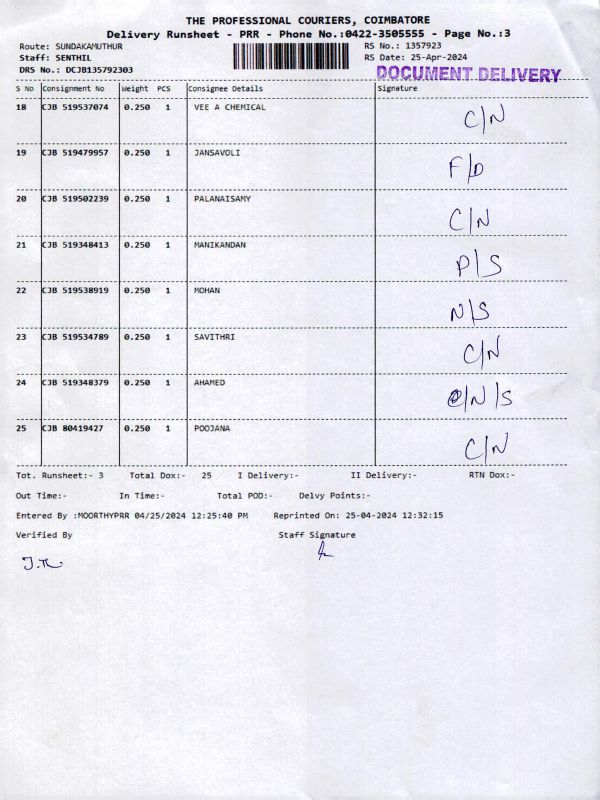 THE PROFESSIONAL COURIERS, COIMBATORE
Delivery Runsheet - PRR - Phone No.:0422-3505555 - Page No.:3
Route: SUNDAKAMUTHUR RS No.: 1357923
Staff: SENTHIL RS Date: 25-Apr-2024
DRS No.: DCJB135792303 DOCUMENT DELIVERY
S No Consignment No Weight PCS Consignee Details Signature
18 CJB 519537074 0.250 1 VEE A CHEMICAL C/N
19 CJB 519479957 0.250 1 JANSAVOLI F/D
20 CJB 519502239 0.250 1 PALANAISAMY C/N
21 CJB 519348413 0.250 1 MANIKANDAN P/S
22 CJB 519538919 0.250 1 MOHAN N/S
23 CJB 519534789 0.250 1 SAVITHRI C/N
24 CJB 519348379 0.250 1 AHAMED /N/S
25 CJB 80419427 0.250 1 POOJANA C/N
Tot. Runsheet:- 3 Total Dox:- 25 I Delivery:- II Delivery:- RTN Dox:-
Out Time:- In Time:- Total POD:- Delvy Points:-
Entered By :MOORTHYPRR 04/25/2024 12:25:40 PM Reprinted On: 25-04-2024 12:32:15
Verified By Staff Signature